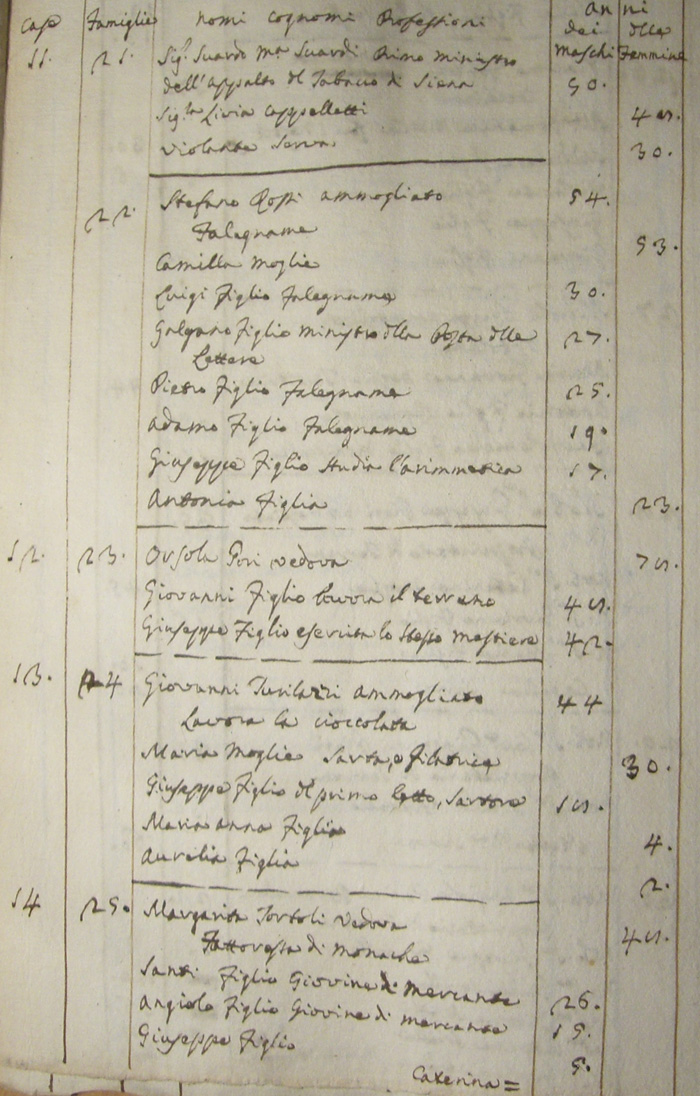 Case Famiglie nomi cognomi Professioni anni dei maschi delle Femmine
11. 21. Sig.r Suardo M.a Suardi Primo ministro
dell'appalto del Tabacco di Siena 50.
Sig.la Livia Cappelletti
Violante Serva 30.
22. Stefano Rossi ammogliato 54.
Falegname
Camilla moglie 53.
Luigi Figlio Falegname 30.
Galgano Figlio ministro della Posta delle 27.
Lettere
Pietro Figlio Falegname 25.
Adamo Figlio Falegname 19.
Giuseppe Figlio studia l'arimmetica 17.
Antonia Figlia 23.
12. 23. Orsola Pori vedova
Giovanni Figlio lavora il terreno
Giuseppe Figlio esercita lo stesso mestiere 42.
13. 24 Giovanni ammogliato 44
Lavora la cioccolata
Maria Moglie Sarta, e filatrice 30.
Giuseppe Figlio del primo letto, Sartore
Maria anna Figlia 4.
Aurelia Figlia 2.
14 25. Margarita Tortoli Vedova
Fattoressa di monache
Santi Figlio Giovine di mercante 26.
Angiolo Figlio Giovine di mercante 15.
Giuseppe Figlio 5.
Caterina =